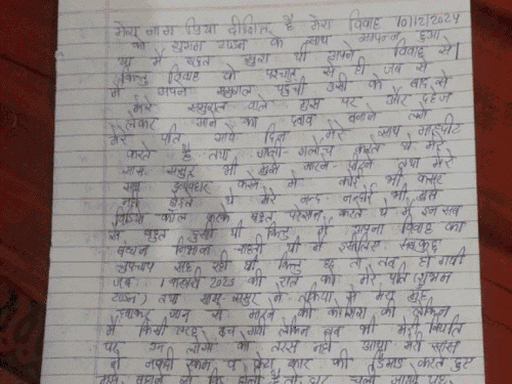 मेरा नाम प्रिया दीक्षित है मेरा विवाह 10/12/2024
को शुभम टण्डन के साथ सम्पन्न हुआ
था मैं बहुत खुश थी अपने विवाह से।
लेकिन विवाह के पश्चात से ही जब से
मैं अपने ससुराल पहुंची उसी के बाद से
मेरे ससुराल वाले मुझ पर और दहेज
लेकर आने का दबाव बनाने लगे
मेरे पति आये दिन मेरे साथ मारपीट
करते है तथा गाली-गलौच करते थे मेरे
सास ससुर भी मुझे मारने पीटने तथा मेरे
साथ दुर्व्यवहार करने में कोई भी कसर
नही छोड़ते थे मेरे नन्द नन्दोई भी मुझे
विडियो कॉल करके बहुत परेशान करते थे मैं इन सब
से बहुत दुखी थी किन्तु मैं अपना विवाह का
बंधन निभाना चाहती थी मैं इसलिए सबकुछ
चुपचाप सह रही थी किन्तु हद तो तब हो गयी
जब 1 जनवरी 2025 की रात को मेरे पति (शुभम
टण्डन) तथा सास-ससुर ने तकिया से मेरा मुंह
दबाकर जान से मारने की कोशिश की लेकिन
मैं किसी तरह बच गयी लेकिन तब भी मेरी स्थिति
पर उन लोगो को तरस नही आया मेरी सास
ने नकदी रकम व क्रेटा कार की डिमांड करते हुए